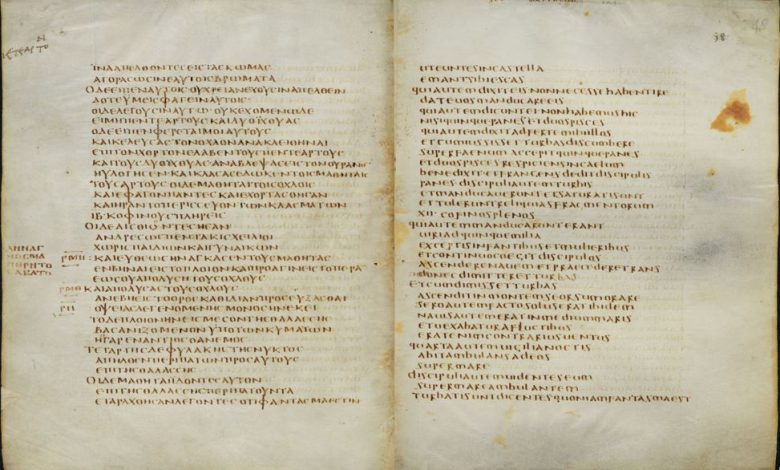 ΙΝΑΑΠΕΛΘΟΝΤΕΣΕΙΣΤΑΣΚΩΜΑΣ
ΑΓΟΡΑΣΩΣΙΝΕΑΥΤΟΙΣΒΡΩΜΑΤΑ
ΟΔΕΕΙΠΕΝΑΥΤΟΙΣΟΥΧΡΕΙΑΝΕΧΟΥΣΙΝΑΠΕΛΘΕΙΝ
ΔΟΤΕΥΜΕΙΣΦΑΓΕΙΝΑΥΤΟΙΣ
ΟΙΔΕΛΕΓΟΥΣΙΝΑΥΤΩΟΥΚΕΧΟΜΕΝΩΔΕ
ΕΙΜΗΠΕΝΤΕΑΡΤΟΥΣΚΑΙΔΥΟΙΧΘΥΑΣ
ΟΔΕΕΙΠΕΝΦΕΡΕΤΑΙΜΟΙΑΥΤΟΥΣ
ΚΑΙΚΕΛΕΥΣΑΣΤΟΝΟΧΛΟΝΑΝΑΚΛΕΙΘΗΝΑΙ
ΕΠΙΤΟΝΧΟΡΤΟΝΕΛΑΒΕΝΤΟΥΣΠΕΝΤΕΑΡΤΟΥΣ
ΚΑΙΤΟΥΣΔΥΟΙΧΘΥΑΣΑΝΑΒΛΕΨΑΣΕΙΣΤΟΝΟΥΡΑΝΟ
ΗΥΛΟΓΗΣΕΝΚΑΙΚΛΑΣΑΣΕΔΩΚΕΝΤΟΙΣΜΑΘΗΤΑΙΣ
ΤΟΥΣΑΡΤΟΥΣΟΙΔΕΜΑΘΗΤΑΙΤΟΙΣΟΧΛΟΙΣ
ΚΑΙΕΦΑΓΟΝΠΑΝΤΕΣΚΑΙΕΧΟΡΤΑΣΘΗΣΑΝ
ΚΑΙΗΡΑΝΤΟΠΕΡΙΣΣΕΥΟΝΤΩΝΚΛΑΣΜΑΤΩΝ
ΙΒ ΚΟΦΙΝΟΥΣΠΛΗΡΕΙΣ
ΟΙΔΕΑΙΣΘΙΟΝΤΕΣΗΣΑΝ
ΑΝΔΡΕΣΩΣΠΕΝΤΑΚΙΣΧΕΙΛΙΟΙ
ΧΩΡΙΣΠΑΙΔΙΩΝΚΑΙΓΥΝΑΙΚΩΝ
ΚΑΙΕΥΘΕΩΣΗΝΑΓΚΑΣΕΝΤΟΥΣΜΑΘΗΤΑΣ
ΕΝΒΗΝΑΙΕΙΣΤΟΠΛΟΙΟΝΚΑΙΠΡΟΑΓΙΝΕΙΣΤΟΠΕΡΑ
ΕΩΣΟΥΑΠΟΛΥΣΗΤΟΥΣΟΧΛΟΥΣ
ΚΑΙΑΠΟΛΥΣΑΣΤΟΥΣΟΧΛΟΥΣ
ΑΝΕΒΗΕΙΣΤΟΟΡΟΣΚΑΘΙΔΙΑΝΠΡΟΣΕΥΞΑΣΘΑΙ
ΟΨΕΙΑΣΔΕΓΕΝΟΜΕΝΗΣΜΟΝΟΣΗΝΕΚΕΙ
ΤΟΔΕΠΛΟΙΟΝΗΝΕΙΣΜΕΣΟΝΤΗΣΘΑΛΑΣΣΗΣ
ΒΑΣΑΝΙΖΟΜΕΝΟΝΥΠΟΤΩΝΚΥΜΑΤΩΝ
ΗΓΑΡΕΝΑΝΤΙΟΣΟΑΝΕΜΟΣ
ΤΕΤΑΡΤΗΣΔΕΦΥΛΑΚΗΣΤΗΣΝΥΚΤΟΣ
ΑΠΗΛΘΕΝΠΕΡΙΠΑΤΩΝΠΡΟΣΑΥΤΟΥΣ
ΕΠΙΤΗΣΘΑΛΑΣΣΗΣ
ΟΙΔΕΜΑΘΗΤΑΙΙΔΟΝΤΕΣΑΥΤΟΝ
ΕΠΙΤΗΣΘΑΛΑΣΣΗΣΠΕΡΙΠΑΤΟΥΝΤΑ
ΕΤΑΡΑΧΘΗΣΑΝΛΕΓΟΝΤΕΣΟΤΙΦΑΝΤΑΣΜΑΕΣΤΙΝ
38
ut euntes in castella
emant sibi escas
qui autem dixit eis non necesse habent ire
date uos manducare eis
qui autem dicunt ei non habemus hic
nisi quinque panes et duos pisces
qui autem dixit adferte mihi illos
et cum iussisset turbas discumbere
super faenum accepit quinque panes
et duos pisces respiciens in caelum
benedixit et frangens dedit discipulis
panes discipuli autem turbis
et manducauerunt et saturati sunt
et tulerunt reliquias fragmentorum
XII cofinos plenos
qui autem manducauerunt erant
uiri ad quinque milia
exceptis infantibus et mulieribus
et continuo coegit discipulos
ascendere nauem et praecedere trans
donec dimitteret turbas
et cum dimisset turbas
ascendit in montem seorsum orare
sero autem facto solus erat ibidem
nauis autem erat in medium maris
et uexabatur a fluctibus
erat enim contrarius uentus
quarta autem uigilia noctis
abit ambulans ad eos
super mare
discipuli autem uidentes eum
super mare ambulantem
turbati sunt dicentes quoniam fantasma est